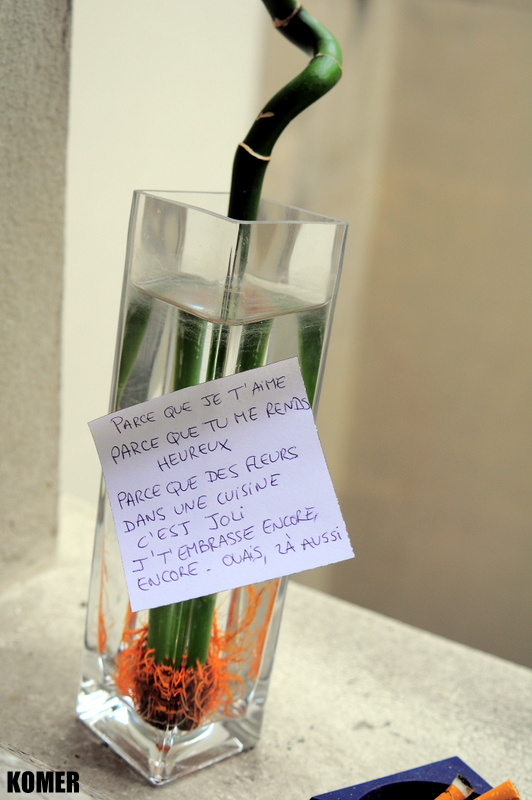 PARCE QUE JE T'AIME
PARCE QUE TU ME RENDS
HEUREUX
PARCE QUE DES FLEURS
DANS UNE CUISINE
C'EST JOLI
J'T'EMBRASSE ENCORE,
ENCORE. OUAIS, LÀ AUSSI
KOMER